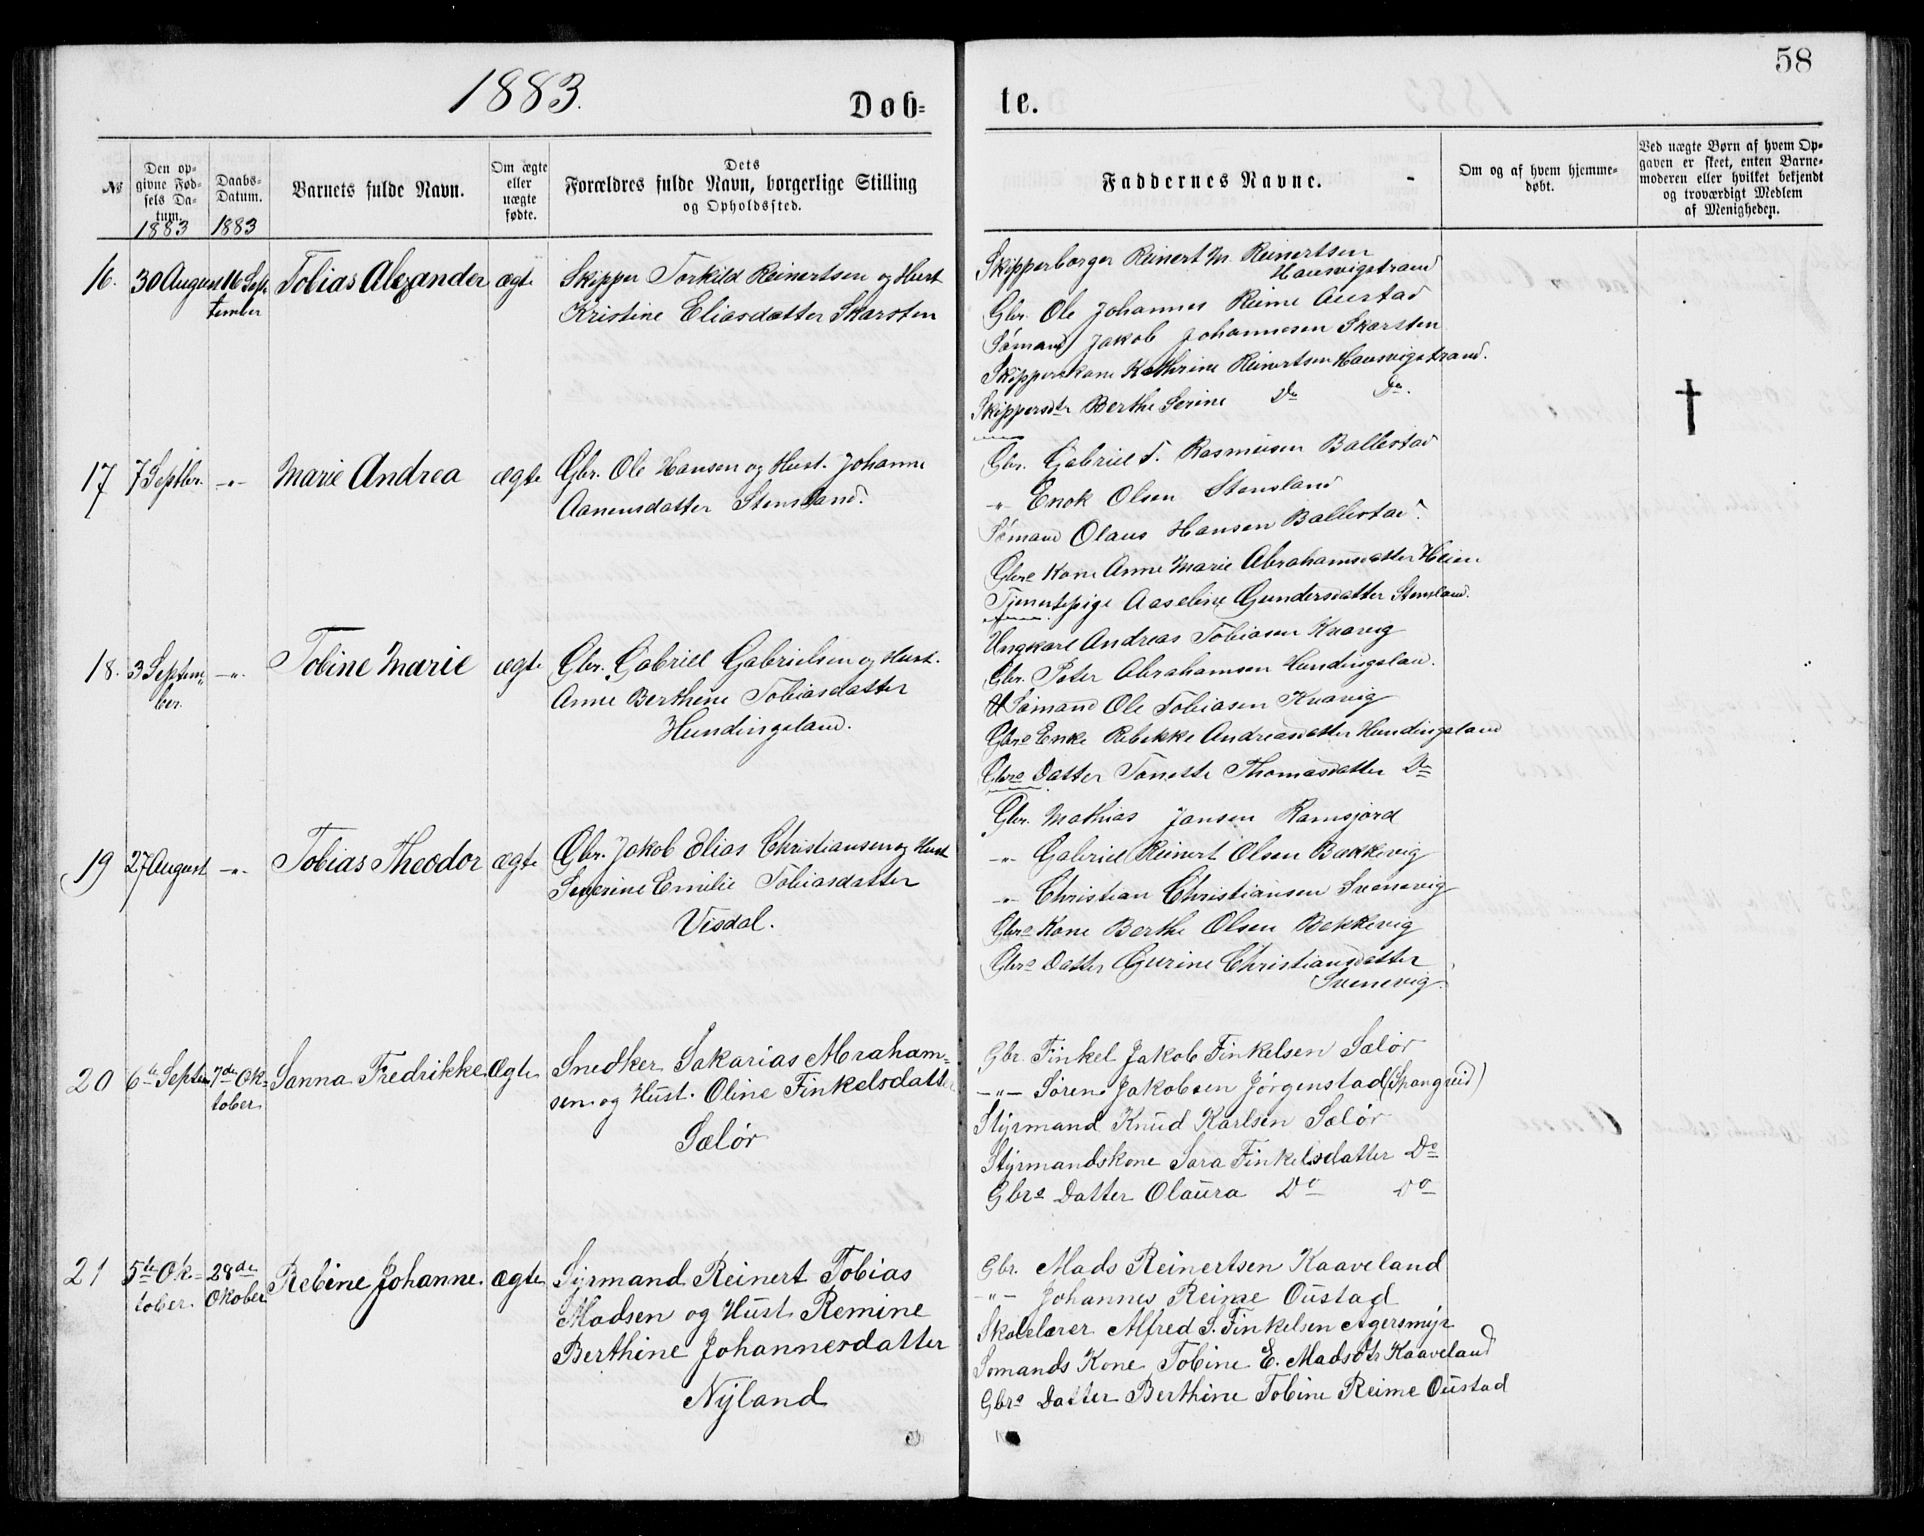 58
1883.
Døb=
te.
№
Den op-
givne Fød-
sels Da-
tum.
1883
Daabs-
Datum.
1883
Barnets fulde Navn.
Om ægte
eller
uægte
fødte.
Dets
Forældres fulde Navn, borgerlige Stilling
og Opholdssted.
Faddernes Navne.
Om og af hvem hjemme-
døbt.
Ved uægte Børn af hvem Op-
gaven er skeet, enten Barne-
moderen eller hvilket bekjendt
og troværdigt Medlem
af Menigheden.
16. 30 August 16 Sep-
tember
Tobias Alexander ægte
Skipper Torkild Reinertsen og Hust
Kristine Eliasdatter Skarsten
Skipperborger Reinert M. Reinertsen
Hausvigstrand
Gbr. Ole Johannes Reime Austad
Sømand Jakob Johannesen Skarsten
Skipperskone Kathrine Reinertsen Hausvigstrand.
Skippersdtr Berthe Serine Do Do.
17 7 Septbr. -"- Marie Andrea ægte
Gbr. Ole Hansen og Hust. Johanne
Aanensdatter Stensland.
Gbr. Gabriel T. Rasmusen Ballestad
-"- Enok Olsen Stensland
Sømand Olaus Hansen Ballestad.
Gbrs Kone Anne Marie Abrahamsdatter Heien
Tjenestepige Aaseline Gundersdatter Stensland.
18. 3 Septem-
ber.
-"- Tobine Marie ægte
Gbr. Gabriel Gabrielsen og Hust.
Anne Berthine Tobiasdatter
Hundingsland.
Ungkarl Andreas Tobiasen Knavig
Gbr. Peter Abrahamsen Hundingsland.
Sømand Ole Tobiasen Knavig
Gbrs Enke Rebekke Andreasdatter Hundingsland
Gbrs Datter Tonette Thomasdatter Do
19 27 August -"- Tobias Theodor ægte
Gbr. Jakob Elias Christiansen og Hust
Severine Emilie Tobiasdatter
Visdal.
Gbr. Mathias Jansen Ramsjord
-"- Gabriel Reinert Olsen Bækkevig
-"- Christian Christiansen Svenevig
Gbrs Kone Berthe Olsen Bekkevig
Gbrs Datter Gurine Christiansdatter
Svenevig.
20 6te Septem 7de Ok-
tober.
Sanna Fredrikke Ægte
Snedker Sakarias Abraham=
sen og Hust. Oline Finkelsdatter
Sælør
Gbr. Finkel Jakob Finkelsen Sælør
-"- Søren Jakobsen Jørgenstad (Spangreid)
Styrmand Knud Karlsen Sælør
Styrmandskone Sara Finkelsdatter Do
Gbrs Datter Olaura Do Do
21 5te Ok=
tober.
28de
Okober
Rebine Johanne. ægte
Syrmand Reinert Tobias
Madsen og Hust. Remine
Berthine Johannesdatter
Nyland
Gbr. Mads Reinertsen Kaaveland
-"- Johannes Reime Oustad
Skolelærer Alfred S. Finkelsen Agersmyr
Somands Kone Tobine E. Madsdtr Kaaveland
Gbrs Datter Berthine Tobine Reime Oustad